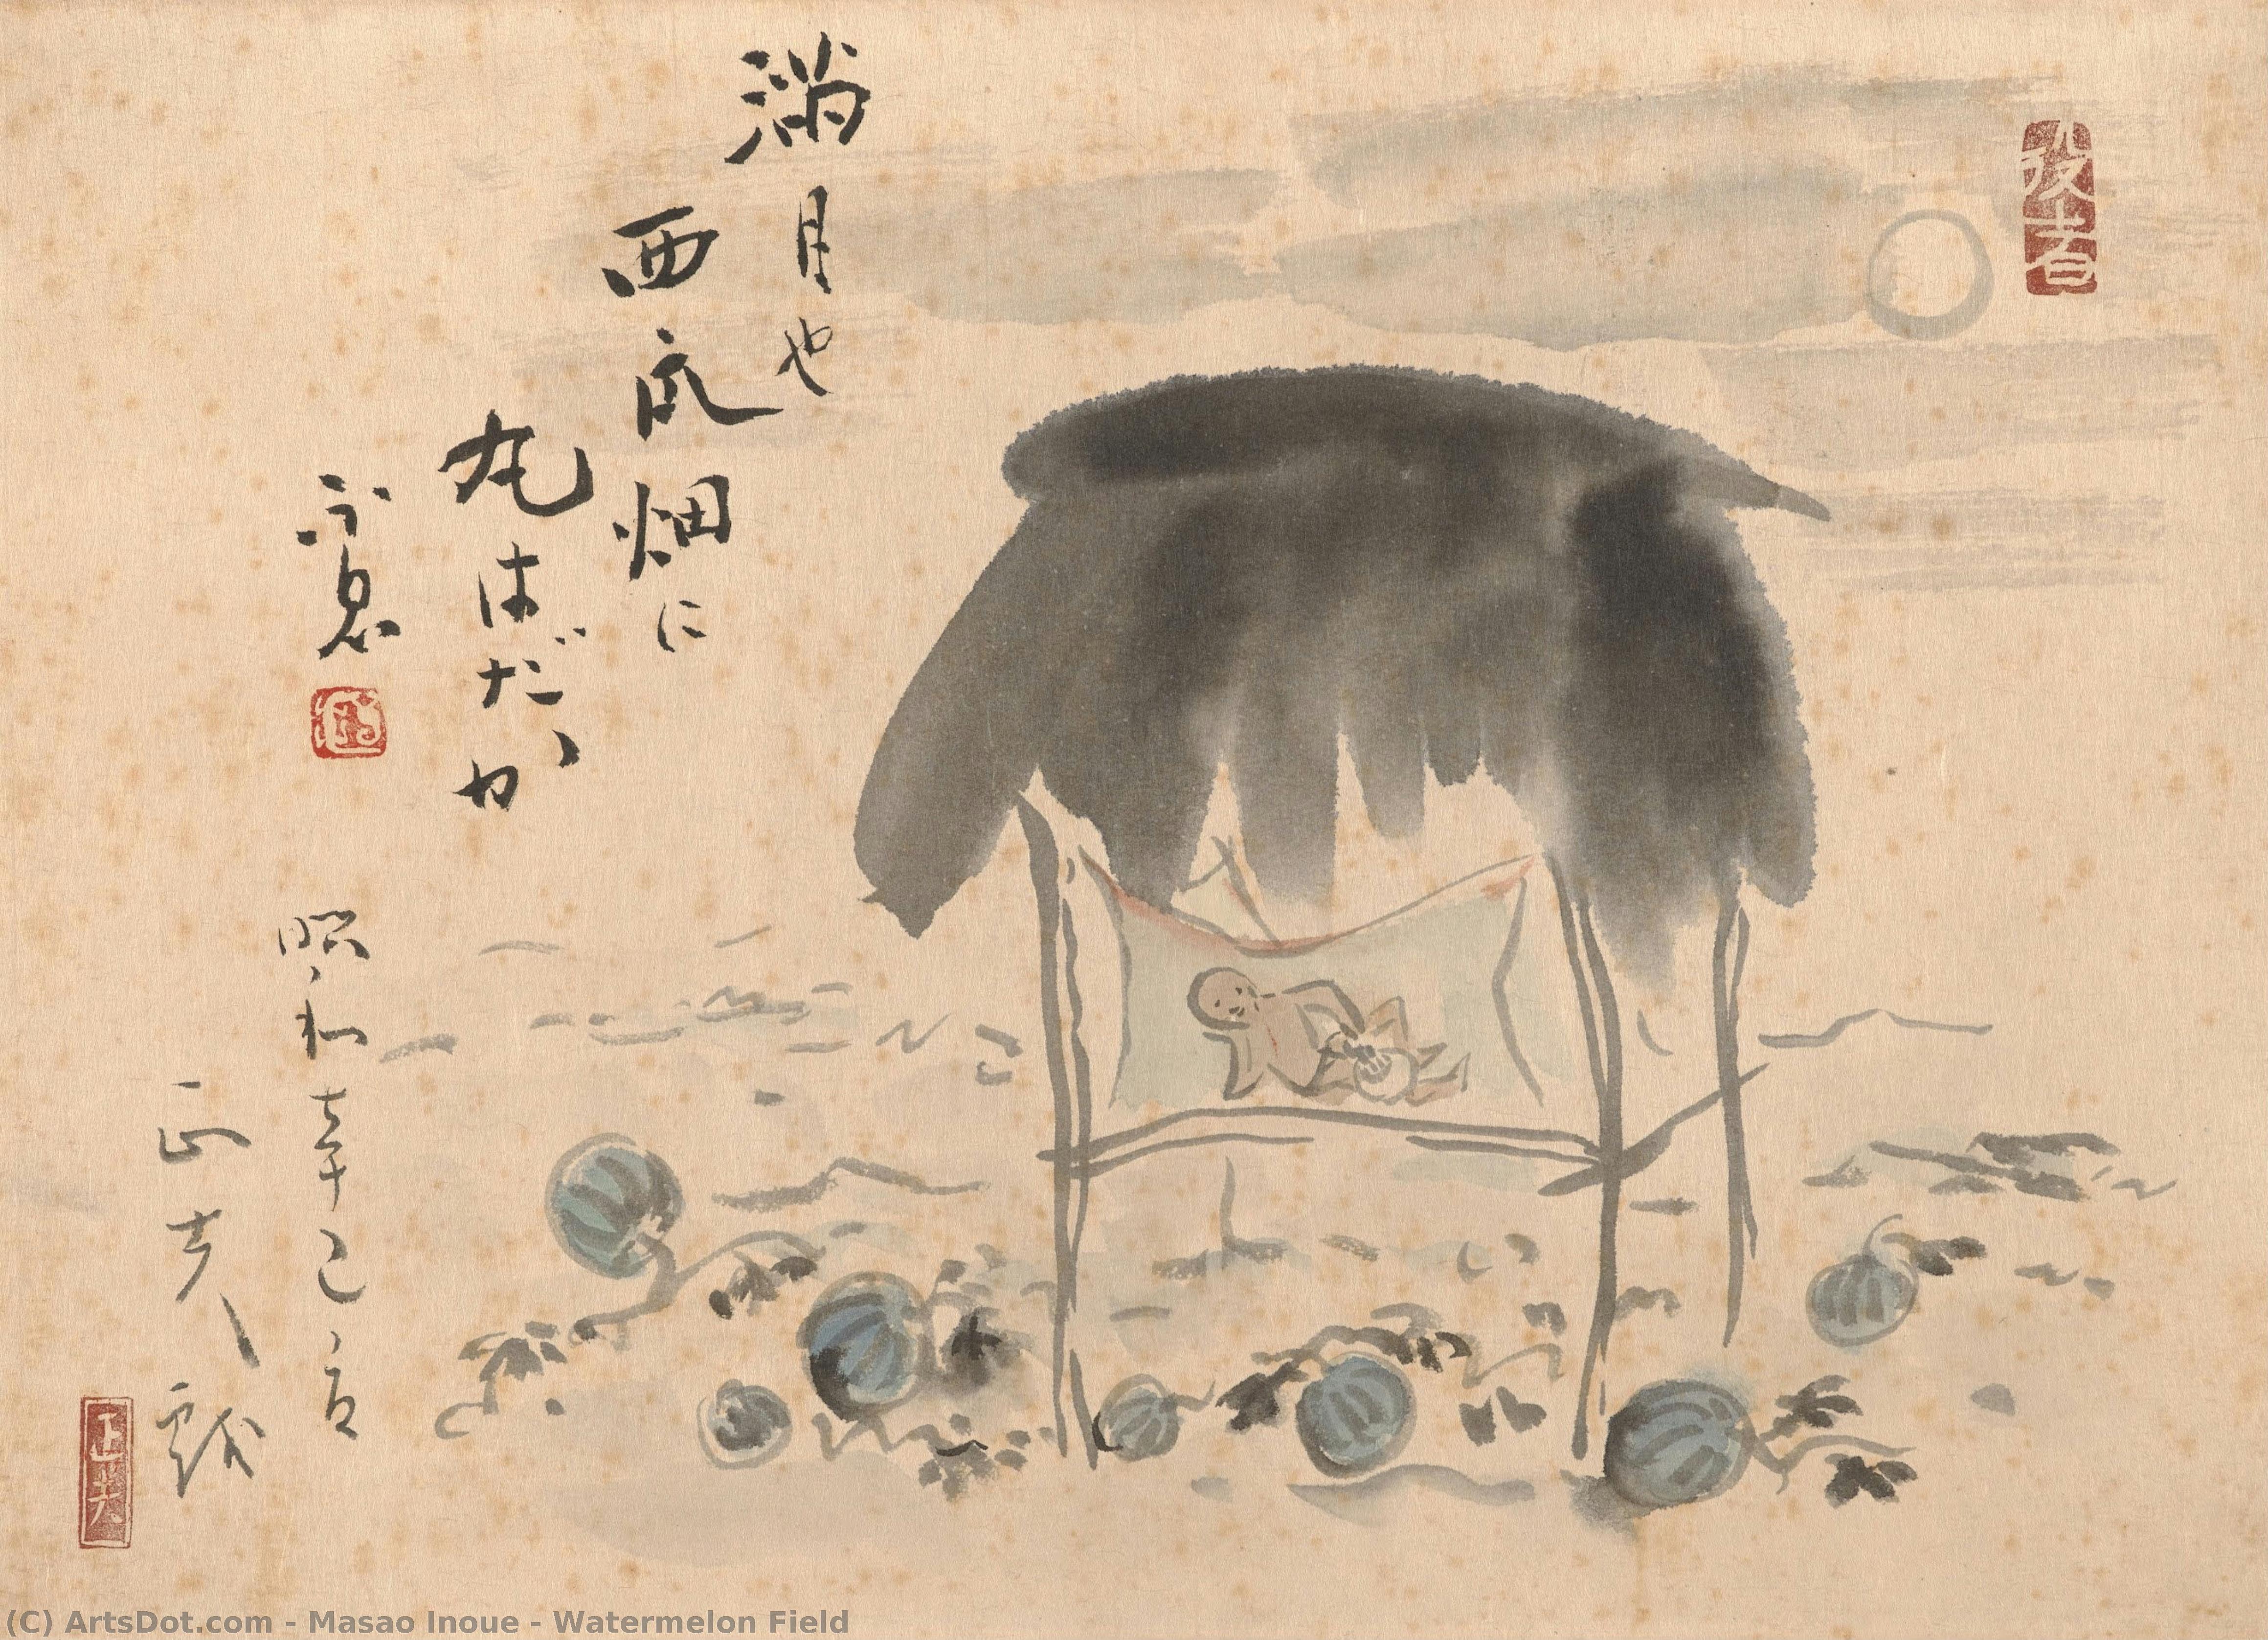 役者
満月也
西瓜畑に
丸はだか
昭和辛巳
正夫
正夫
(C) ArtsDot.com - Masao Inoue - Watermelon Field